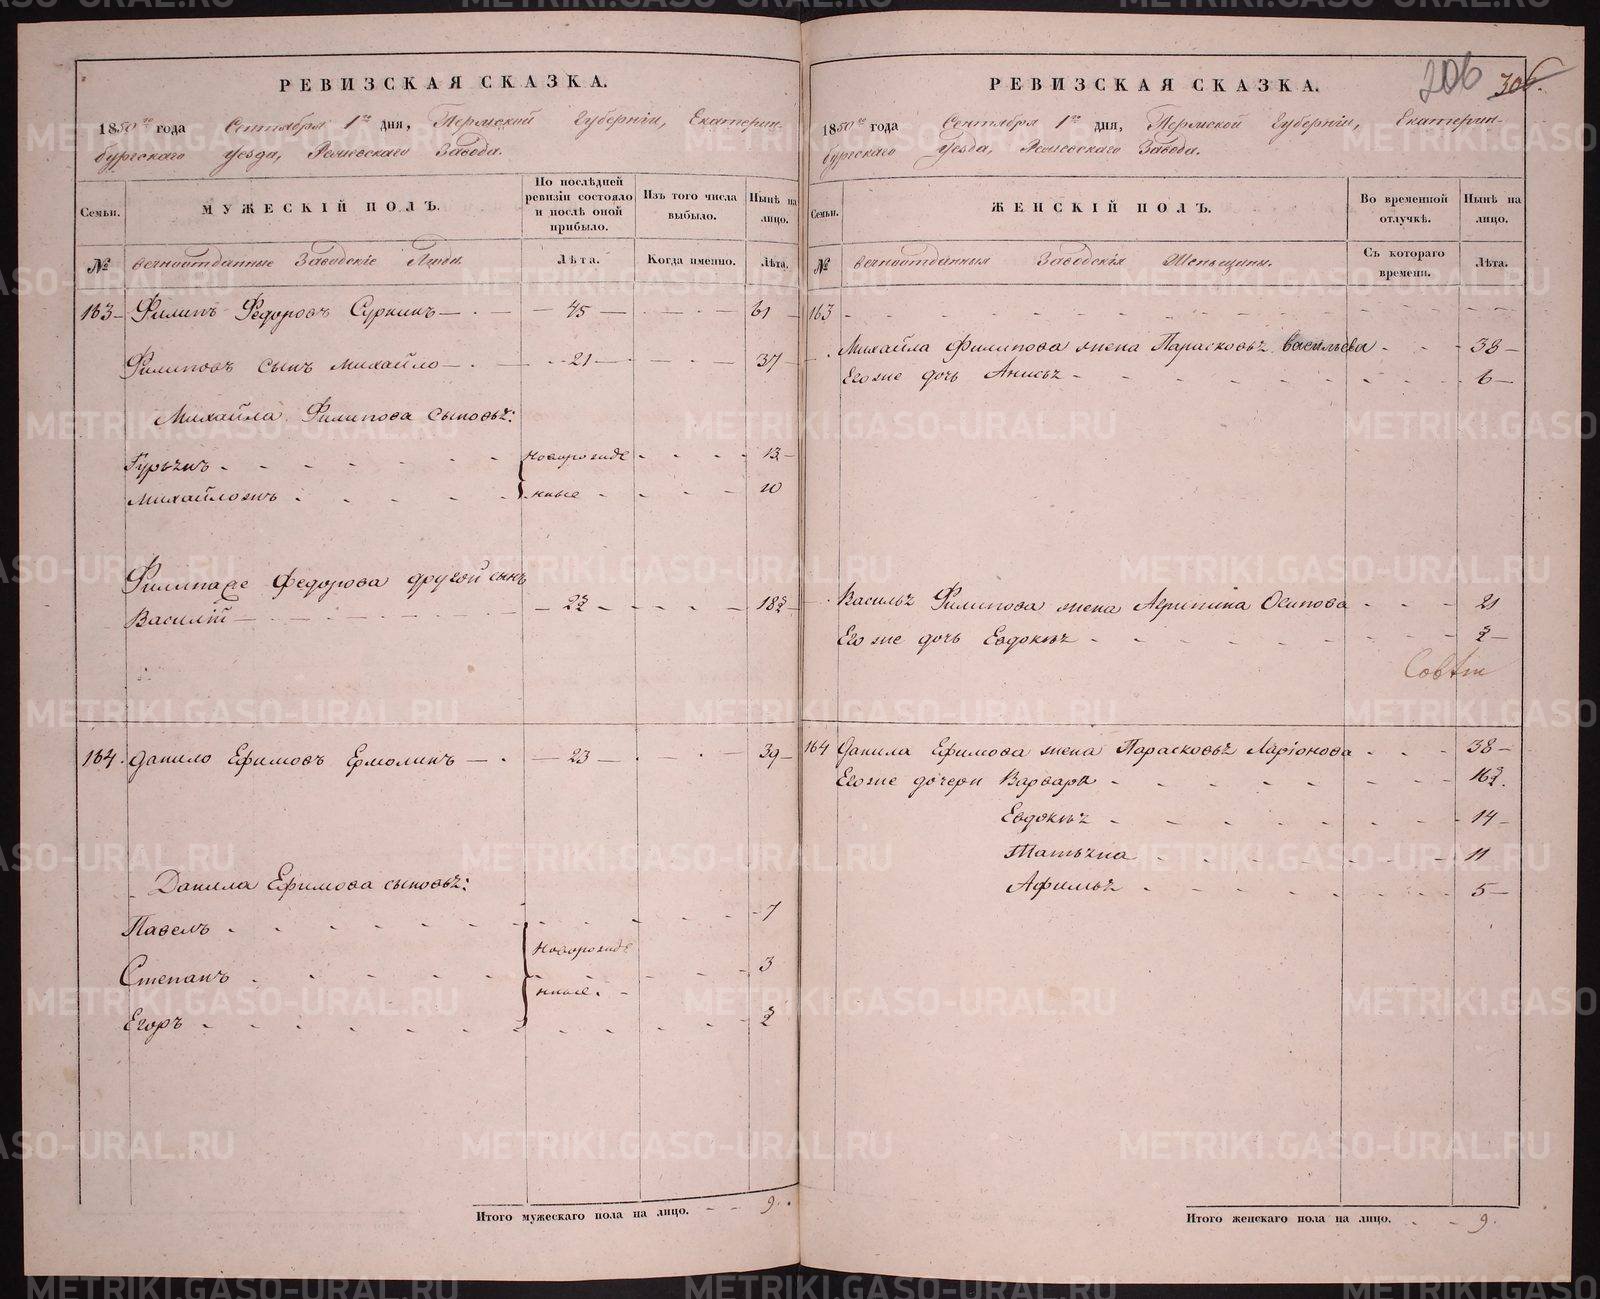 РЕВИЗСКАЯ СКАЗКА.
1850го года Сентября 1го дня, Пермской Губерніи, Екатерин-
бургскаго Уезда, Режевскаго Завода.
Семьи.
МУЖЕСКІЙ ПОЛЪ.
По послѣдней ревизіи состояло и послѣ оной прибыло.
Изъ того числа выбыло.
Нынѣ на лицо.
№ вечноотданные Заводскіе Люди.
Лѣта.
Когда именно.
Лѣта.
163 Филипъ Федоровъ Суркинъ 45 61
Филиповъ сынъ Михайло 21 37
Михайла Филипова сыновья:
Гурьянъ 13
Новорожде
Михайложъ 10
нные
Филипаже Федорова другой сынъ
Василій 2½ 18½
164. Данило Ефимовъ Ермолинъ 23 39
Данила Ефимова сыновья:
Павелъ 7
Новорожде
Степанъ 3
нные.
Егоръ ½
Итого мужескаго пола на лицо. 9.
206 306.
РЕВИЗСКАЯ СКАЗКА.
1850го года Сентября 1го дня, Пермской Губерніи, Екатерин-
бургскаго Уезда, Режевскаго Завода.
Семьи.
ЖЕНСКІЙ ПОЛЪ.
Во временной отлучкѣ.
Нынѣ на лицо.
№ вечноотданныя Заводскія Женьщины.
Съ котораго времени.
Лѣта.
163
Михайла Филипова жена Парасковья Васильева 38
Его же дочь Анисья 6
Василья Филипова жена Агрипина Осипова 21
Его же дочь Евдокья ½
164 Данила Ефимова жена Парасковья Ларіонова 38
Его же дочери Варвара 16½.
Евдокья 14
Татьяна 11
Афимья 5
Итого женскаго пола на лицо. 9.
METRIKI.GASO-URAL.RU